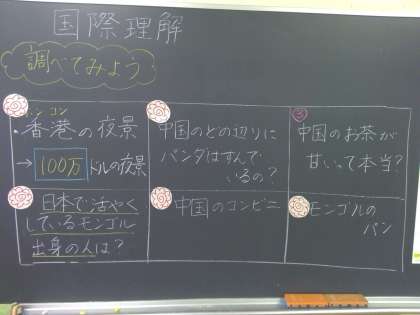 国際理解
調べてみよう
ホンコン
・香港の夜景
→100万ドルの夜景
中国のどの辺りに
パンダはすんで
いるの?
中国のお茶が
甘いって本当?
日本で活やく
しているモンゴル
出身の人は?
中国のコンビニ
モンゴルの
パン